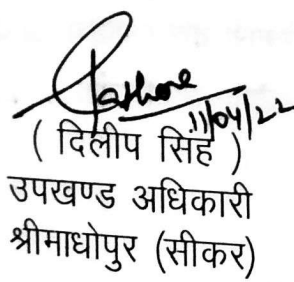 Rathore
11/04/22
( दिलीप सिंह )
उपखण्ड अधिकारी
श्रीमाधोपुर (सीकर)